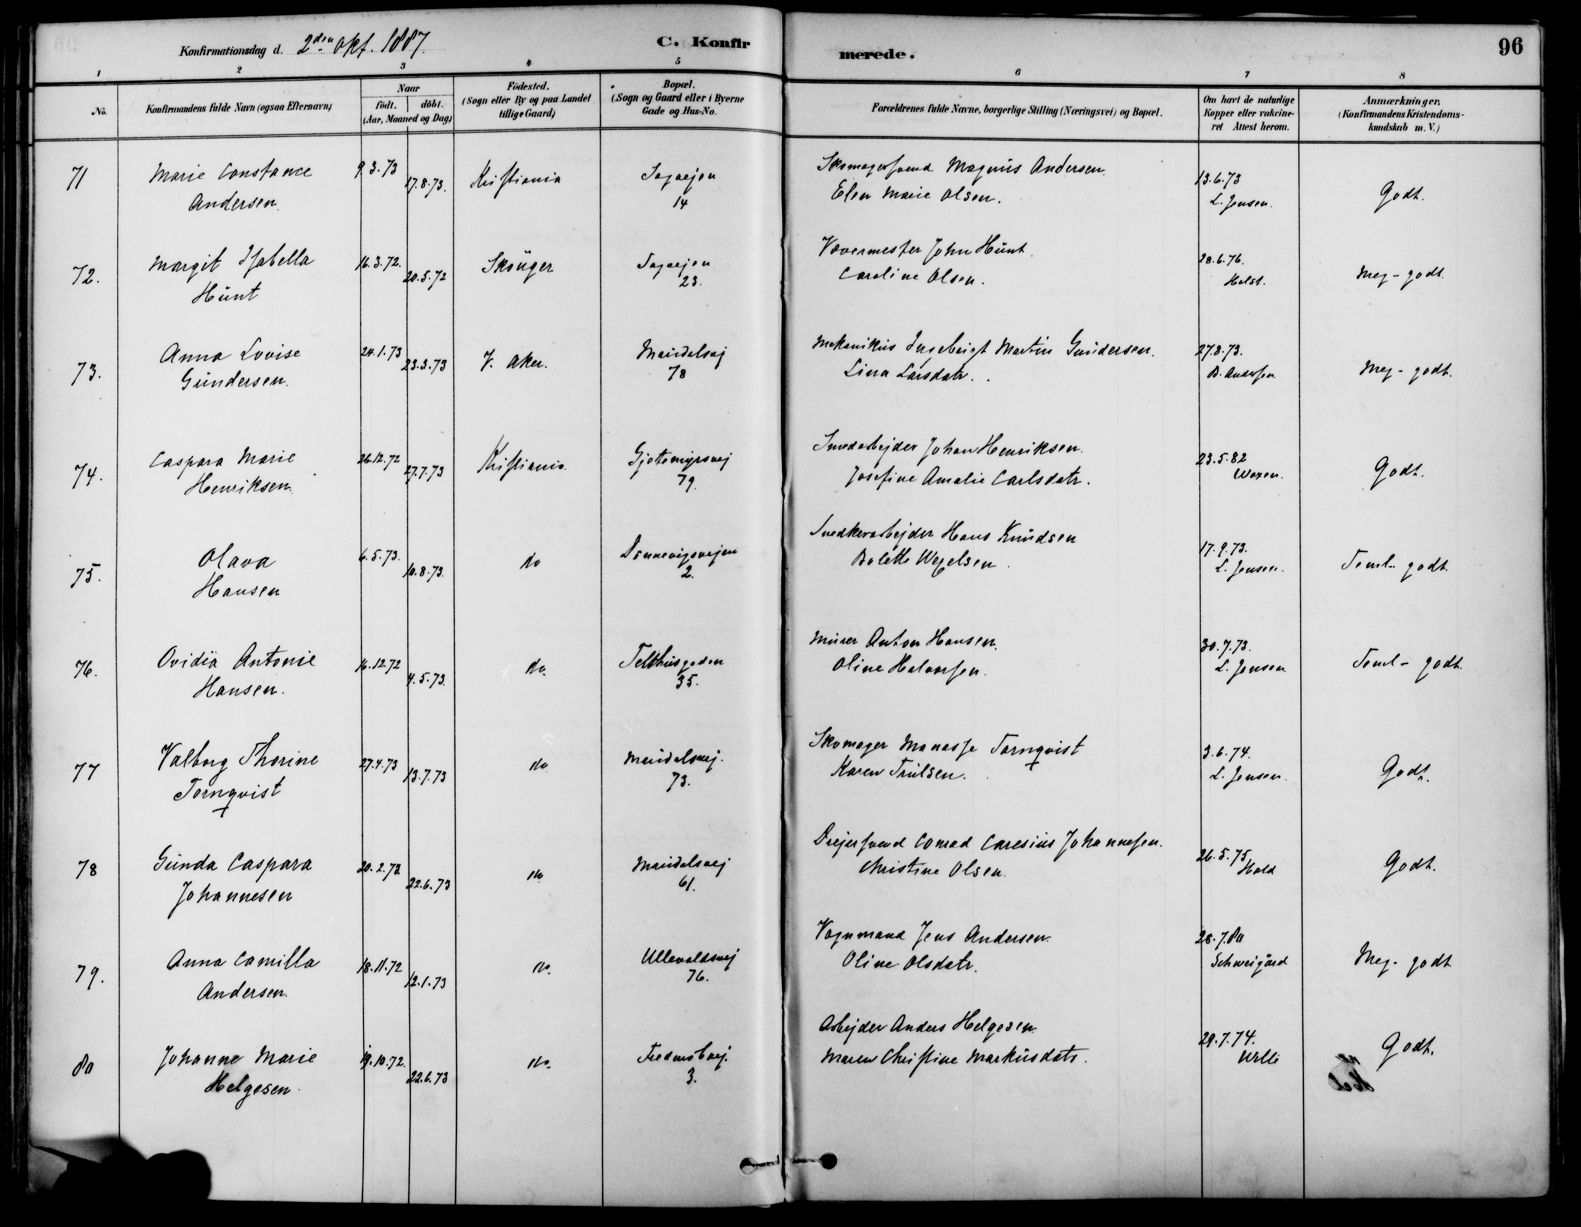 96
Konfirmationsdag d. 2den Okt. 1887.
C. Konfirmerede.
1 2 3 4 5 6 7 8
No.
Konfirmandens fulde Navn (ogsaa Efternavn)
Naar
født. døbt.
(Aar, Maaned og Dag)
Fødested.
(Sogn eller By og paa Landet
tillige Gaard)
Bopæl.
(Sogn og Gaard eller i Byerne
Gade og Hus-No.
Forældrenes fulde Navne, borgerlige Stilling (Næringsvei) og Bopæl.
Om havt de naturlige
Kopper eller vakcine-
ret Attest herom.
Anmærkninger.
(Konfirmandens Kristendoms-
kundskab m. V.)
71 Marie Constance 9.3.73 17.8.73. Kristiania Sagvejen Skomagersvend Magnus Andersen. 13.6.73
Andersen. 14 Elen Marie Olsen. L. Jensen. Godt.
72. Margit Isabella 16.3.72. 20.5.72 Skouger Sagvejen Vævermester John Hunt. 28.6.76.
Hunt 23. Caroline Olsen. Holst. Meg- godt.
73. Anna Lovise 24.1.73 23.3.73 V. Aker. Maridalsvej Mekanikus Ingebrigt Martin Gundersen. 27.8.73.
Gundersen. 78 Lina Larsdatr. B. Andersen Meg- godt.
74. Caspara Marie 26.12.72 27.7.73 Kristiania. Gjetemyrsvej Smedarbejder Johan Henriksen. 23.5.82
Henriksen. 79. Josefine Amalie Carlsdatr. Godt.
75. Olava 6.5.73. 10.8.73. do Snedkerarbejder Hans Knudsen 17.9.73.
Hansen 2. Bolette L. Jensen. Teml- godt.
76. Ovidia Antonie 16.12.72 4.5.73. do. Telthusgaden Murer Anton Hansen. 30.7.73.
Hansen. 35. Oline Halvorsen. L. Jensen Teml- godt.
77 Valborg Thorine 27.4.73 13.7.73 do Maridalsvej. Skomager Manasse Tornqvist 3.6.74.
Tornqvist 73. Karen Trulsen. L. Jensen. Godt.
78 Gunda Caspara 20.2.73 22.6.73 do. Maridalsvej Drejersvend Conrad Johannesen. 26.5.75
Johannesen 61. Christine Olsen. Hald Godt.
79. Anna Camilla 18.11.72 12.1.73 do. Ullevoldsvej Vognmand Jens Andersen. 28.7.80
Andersen. 76. Oline Olsdatr. Schweigård Meg. godt
80 Johanne Marie 19.10.72. 22.6.73 do. Arbejder Anders Helgesen. 29.7.74.
Helgesen. 3. Maren Christine Markusdatr. Wille Godt.